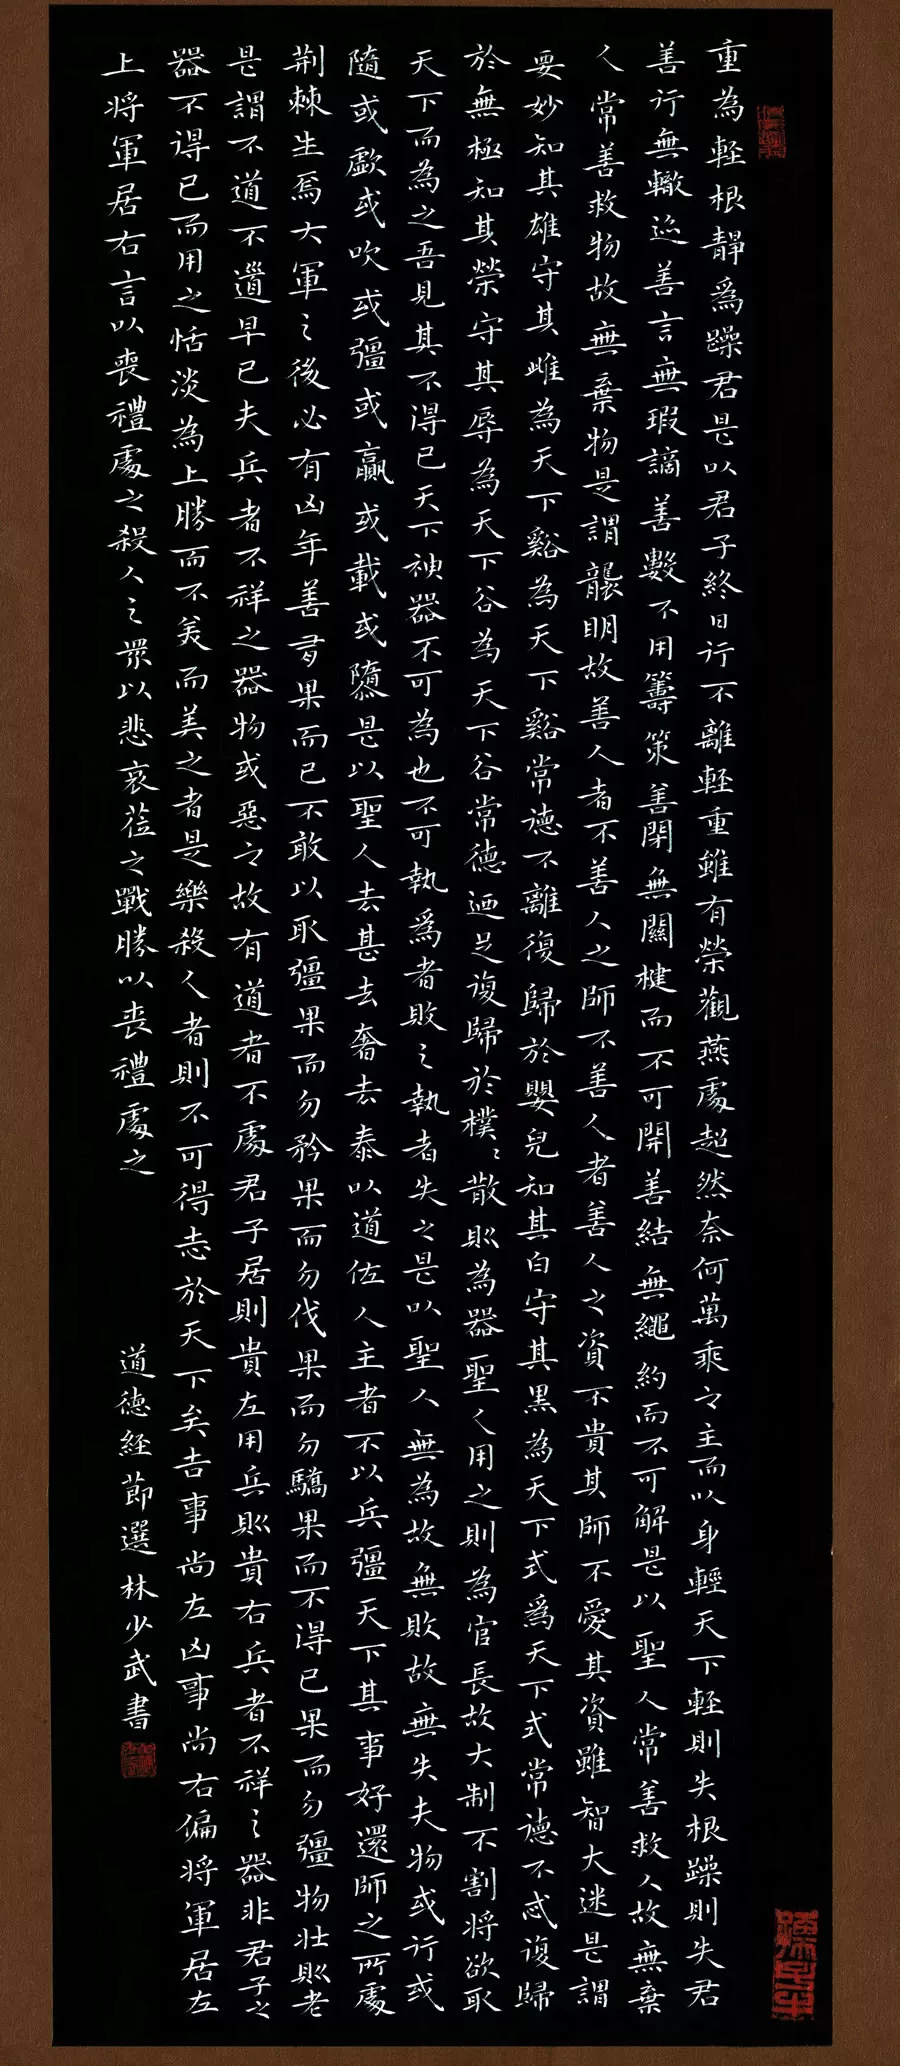 重為輕根靜為躁君是以君子終日行不離輕重雖有榮觀燕處超然奈何萬乘之主而以身輕天下輕則失根躁則失君
善行無轍迹善言無瑕謫善數不用籌策善閉無關楗而不可開善結無繩約而不可解是以聖人常善救人故無棄
人常善救物故無棄物是謂襲明故善人者不善人之師不善人者善人之資不貴其師不愛其資雖智大迷是謂
要妙知其雄守其雌為天下谿為天下谿常德不離復歸於嬰兒知其白守其黑為天下式為天下式常德不忒復歸
於無極知其榮守其辱為天下谷為天下谷常德迺足復歸於樸〻散則為器聖人用之則為官長故大制不割將欲取
天下而為之吾見其不得已天下神器不可為也不可執為者敗之執者失之是以聖人無為故無敗故無失夫物或行或
隨或歔或吹或彊或羸或載或隳是以聖人去甚去奢去泰以道佐人主者不以兵彊天下其事好還師之所處
荆棘生焉大軍之後必有凶年善者果而已不敢以取彊果而勿矜果而勿伐果而勿驕果而不得已果而勿彊物壯則老
是謂不道不道早已夫兵者不祥之器物或惡之故有道者不處君子居則貴左用兵則貴右兵者不祥之器非君子之
器不得已而用之恬淡為上勝而不美而美之者是樂殺人者則不可得志於天下矣吉事尚左凶事尚右偏將軍居左
上將軍居右言以喪禮處之殺人之眾以悲哀蒞之戰勝以喪禮處之
道德經節選 林少武書